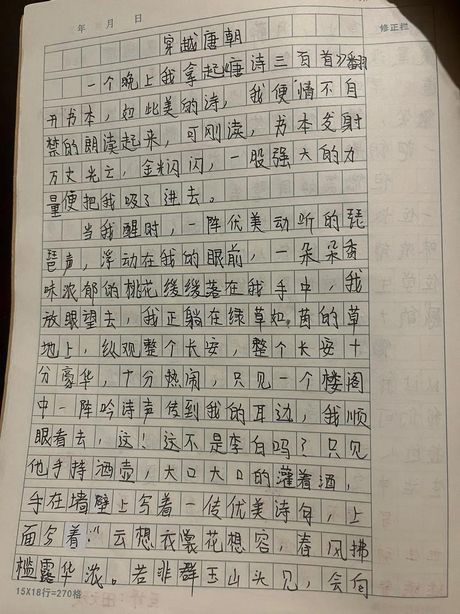 年 月 日
修正栏
穿越唐朝
一个晚上我拿起《唐诗三百首》翻
开书本，如此美的诗，我便情不自
禁的朗读起来，可刚读，书本发射
万丈光芒，金光闪闪，一股强大的力
量便把我吸了进去。
当我醒时，一阵优美动听的琵
琶声，浮动在我的眼前，一朵朵香
味浓郁的桃花缓缓落在我手中，我
放眼望去，我正躺在绿草如茵的草
地上，纵观整个长安，整个长安十
分豪华，十分热闹，只见一个楼阁
中一阵吟诗声传到我的耳边，我顺
眼看去，这！这不是李白吗？只见
他手持酒壶，大口大口的灌着酒，
手在墙壁上写着一传优美诗句，上
面写着：“云想衣裳花想容，春风拂
槛露华浓。若非群玉山头见，会向
15X18行=270格